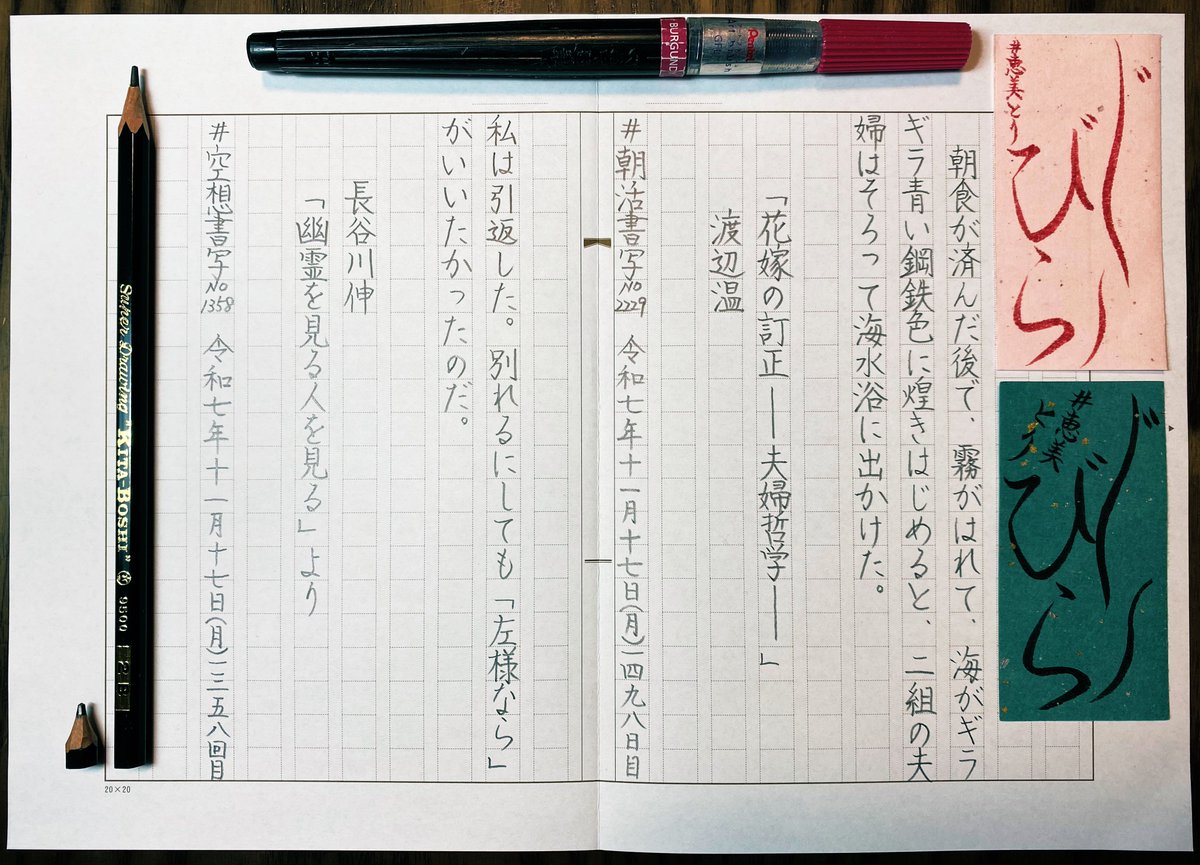 朝食が済んだ後で、霧がはれて、海がギラ
ギラ青い鋼鉄色に煌きはじめると、二組の夫
婦はそろって海水浴に出かけた。
「花嫁の訂正――夫婦哲学――」
渡辺温
#朝活書写No2229 令和七年十一月十七日(月)一四九八日目
私は引返した。別れるにしても「左様なら」
がいいたかったのだ。
長谷川伸
「幽霊を見る人を見る」より
#空想書写No1358 令和七年十一月十七日(月)一三五八回目
20×20
じー
びら
#恵美とり
じー
びら
#恵美とり
BURGUND
Pentel
Super Drawing "KITA-BOSHI" 9500 2B